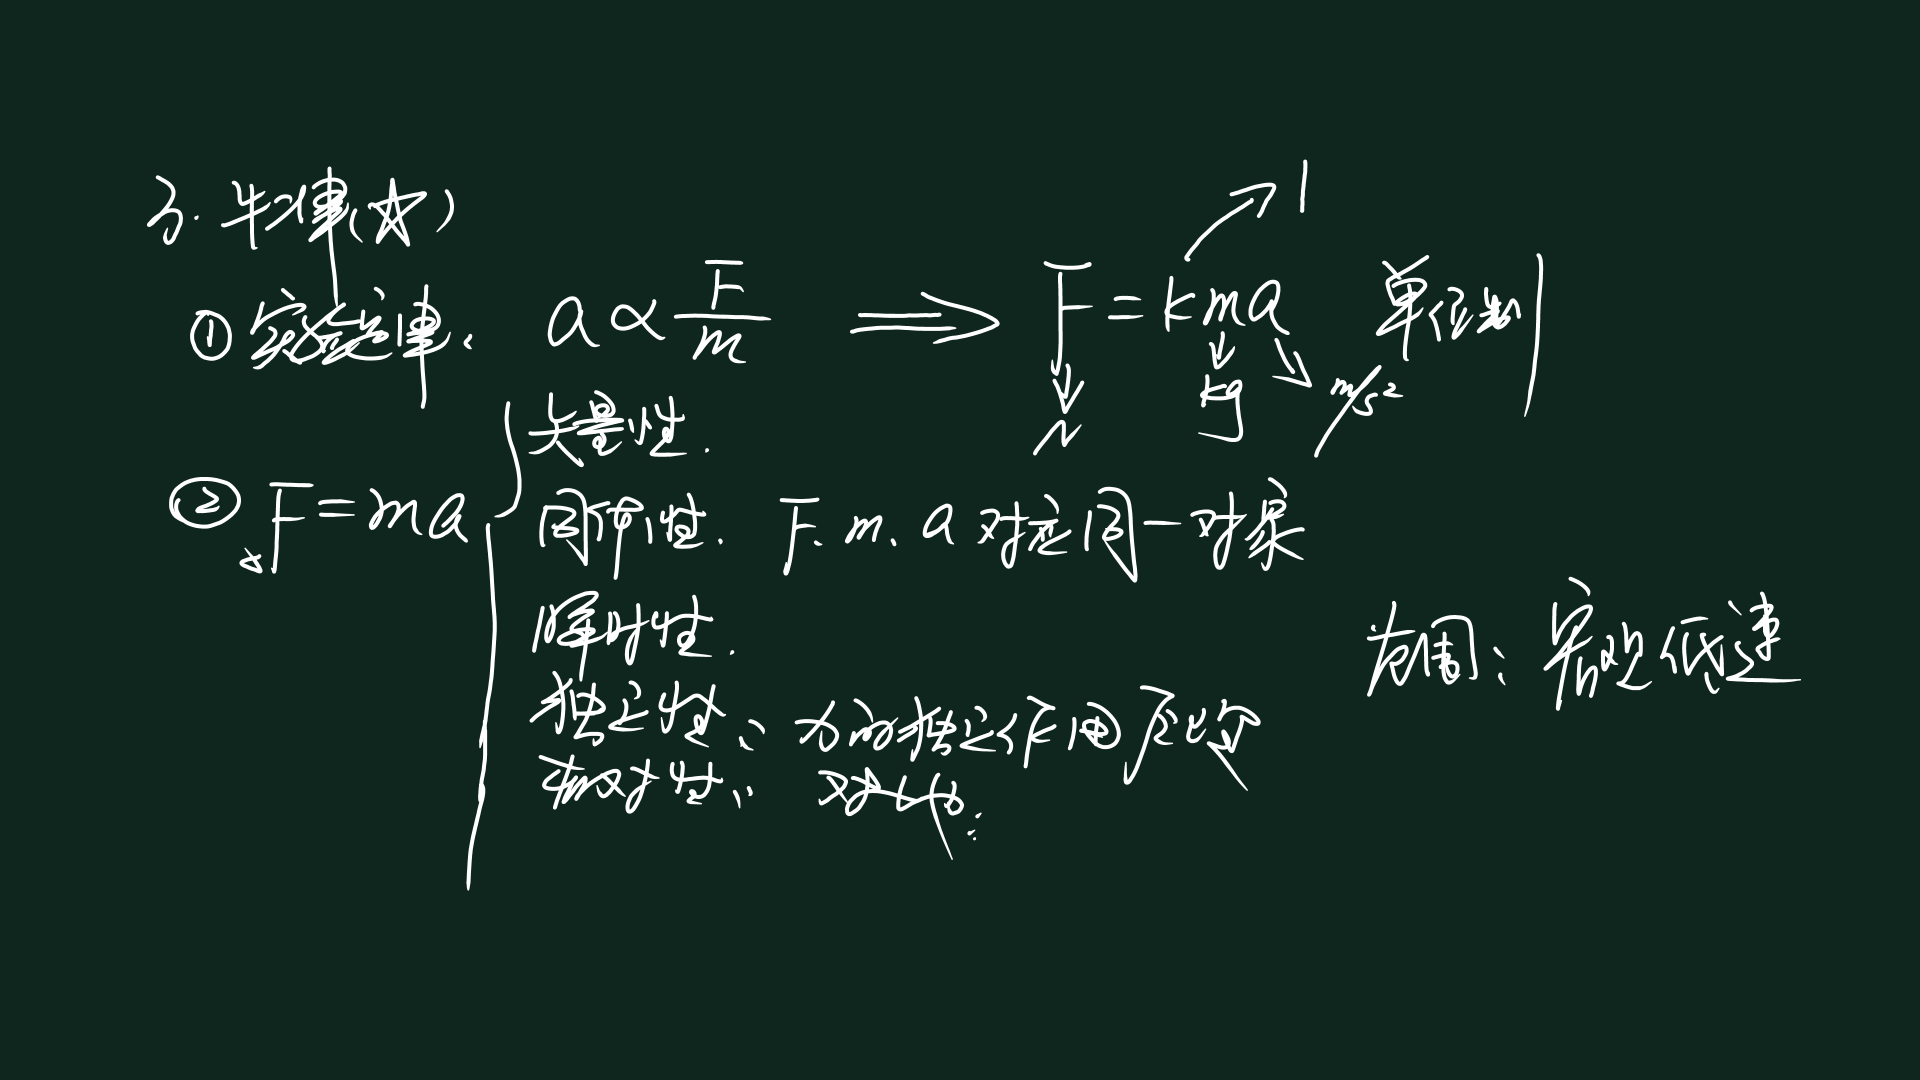 3. 牛二律(☆)
① 实验定律: a ∝ F/m ⟹ F = kma 单位制
k → 1
F → N m → kg a → m/s²
② F = ma
矢量性.
同体性. F. m. a 对应同一对象
瞬时性.
独立性: 力的独立作用
相对性: 对地:
范围: 宏观低速